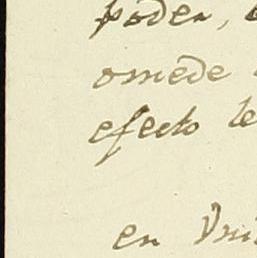 poder,
omede
efecto le
en Vni